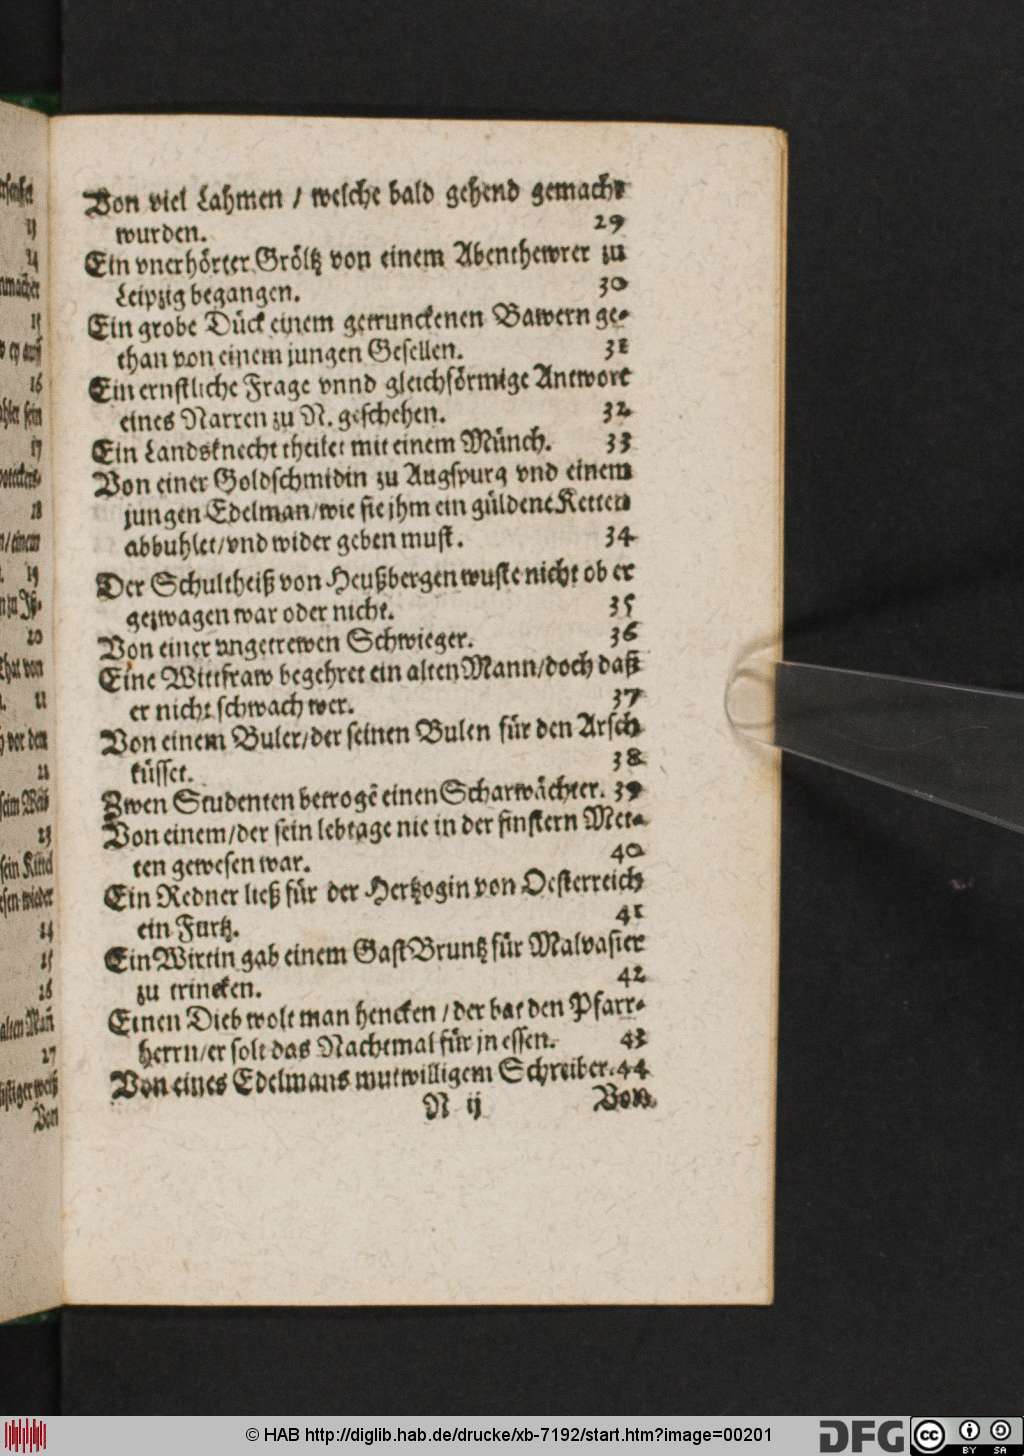 Von viel Lahmen / welche bald gehend gemacht
wurden. 29
Ein vnerhörter Gröltz von einem Abenthewrer zu
Leipzig begangen. 30
Ein grobe Dück einem getrunckenen Bawern ge-
than von einem jungen Gesellen. 31
Ein ernstliche Frage vnnd gleichförmige Antwort
eines Narren zu N. geschehen. 32
Ein Landsknecht theilet mit einem Münch. 33
Von einer Goldschmidin zu Augspurg vnd einem
jungen Edelman/wie sie jhm ein güldene Ketten
abbuhlet/vnd wider geben must. 34
Der Schultheiß von Heußbergen wuste nicht ob er
gezwagen war oder nicht. 35
Von einer vngetrewen Schwieger. 36
Eine Wittfraw begehret ein alten Mann/doch daß
er nicht schwach wer. 37
Von einem Buler/der seinen Bulen für den Arsch
küsset. 38
Zwen Studenten betrogē einen Scharwächter. 39
Von einem/der sein lebtage nie in der finstern Met-
ten gewesen war. 40
Ein Redner ließ für der Hertzogin von Oesterreich
ein Furtz. 41
Ein Wirtin gab einem Gast Bruntz für Malvasier
zu trincken. 42
Einen Dieb wolt man hencken / der bat den Pfarr-
herrn/er solt das Nachtmal für jn essen. 43
Von eines Edelmans mutwilligem Schreiber. 44
N ij Von
13
14
15
16
17
18
19
20
21
22
23
24
25
26
alten Mañ
27
Von
© HAB http://diglib.hab.de/drucke/xb-7192/start.htm?image=00201
DFG
cc
BY SA